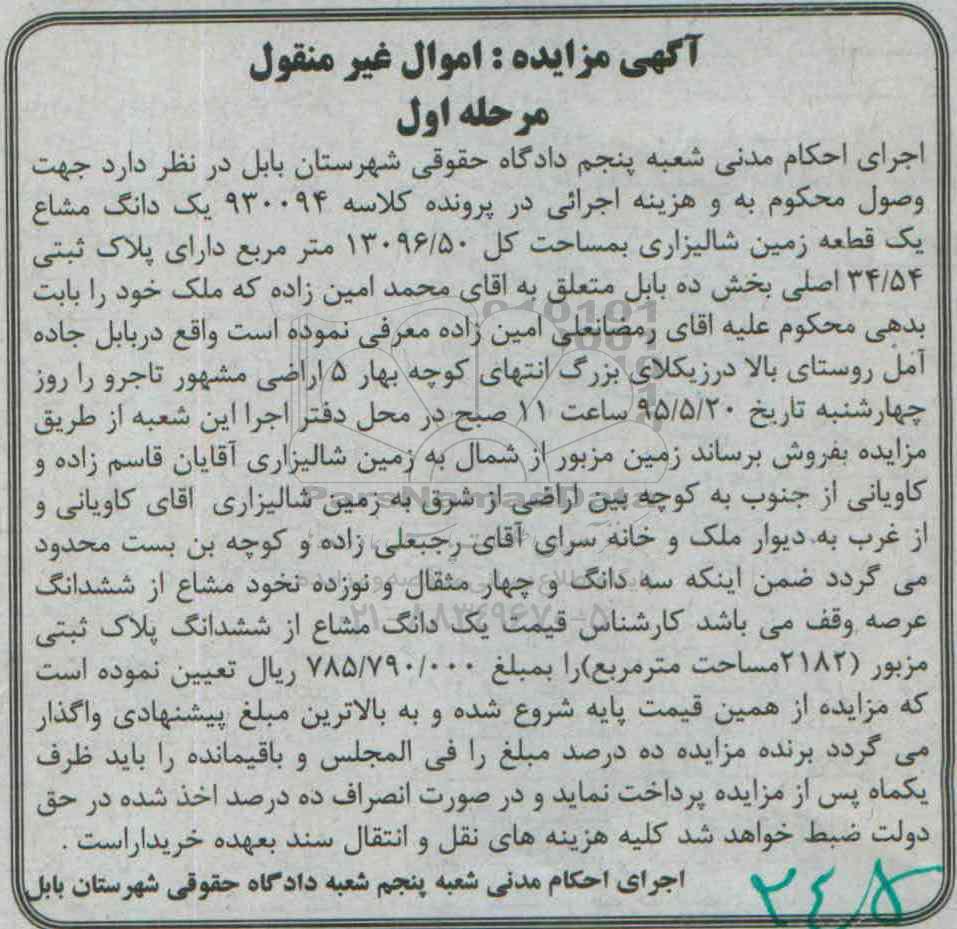 آگهی مزایده : اموال غیر منقول
مرحله اول
اجرای احکام مدنی شعبه پنجم دادگاه حقوقی شهرستان بابل در نظر دارد جهت
وصول محکوم به و هزینه اجرائی در پرونده کلاسه ۹۳۰۰۹۴ یک دانگ مشاع
یک قطعه زمین شالیزاری بمساحت کل ۱۳۰۹۶/۵۰ متر مربع دارای پلاک ثبتی
۳۴/۵۴ اصلی بخش ده بابل متعلق به اقای محمد امین زاده که ملک خود را بابت
بدهی محکوم علیه اقای رمضانعلی امین زاده معرفی نموده است واقع دربابل جاده
آمل روستای بالا درزیکلای بزرگ انتهای کوچه بهار ۵ اراضی مشهور تاجرو را روز
چهارشنبه تاریخ ۹۵/۵/۲۰ ساعت ۱۱ صبح در محل دفتر اجرا این شعبه از طریق
مزایده بفروش برساند زمین مزبور از شمال به زمین شالیزاری آقایان قاسم زاده و
کاویانی از جنوب به کوچه بین اراضی از شرق به زمین شالیزاری اقای کاویانی و
از غرب به دیوار ملک و خانه سرای آقای رجبعلی زاده و کوچه بن بست محدود
می گردد ضمن اینکه سه دانگ و چهار مثقال و نوزده نخود مشاع از ششدانگ
عرصه وقف می باشد کارشناس قیمت یک دانگ مشاع از ششدانگ پلاک ثبتی
مزبور (۲۱۸۲مساحت مترمربع)را بمبلغ ۷۸۵/۷۹۰/۰۰۰ ریال تعیین نموده است
که مزایده از همین قیمت پایه شروع شده و به بالاترین مبلغ پیشنهادی واگذار
می گردد برنده مزایده ده درصد مبلغ را فی المجلس و باقیمانده را باید ظرف
یکماه پس از مزایده پرداخت نماید و در صورت انصراف ده درصد اخذ شده در حق
دولت ضبط خواهد شد کلیه هزینه های نقل و انتقال سند بعهده خریداراست .
اجرای احکام مدنی شعبه پنجم شعبه دادگاه حقوقی شهرستان بابل
ParsNamadData
۰۲۱-۸۸۳۴۹۶۷۰-۵